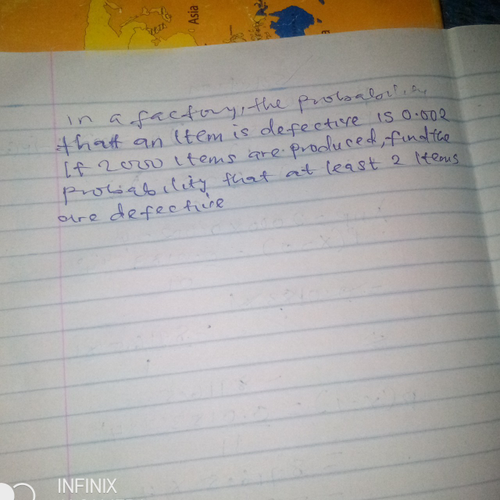 Asia
In a factory, the probability
that an Item is defective is 0.002
If items are produced, find the
probability that at least 2 Items
are defective
INFINIX